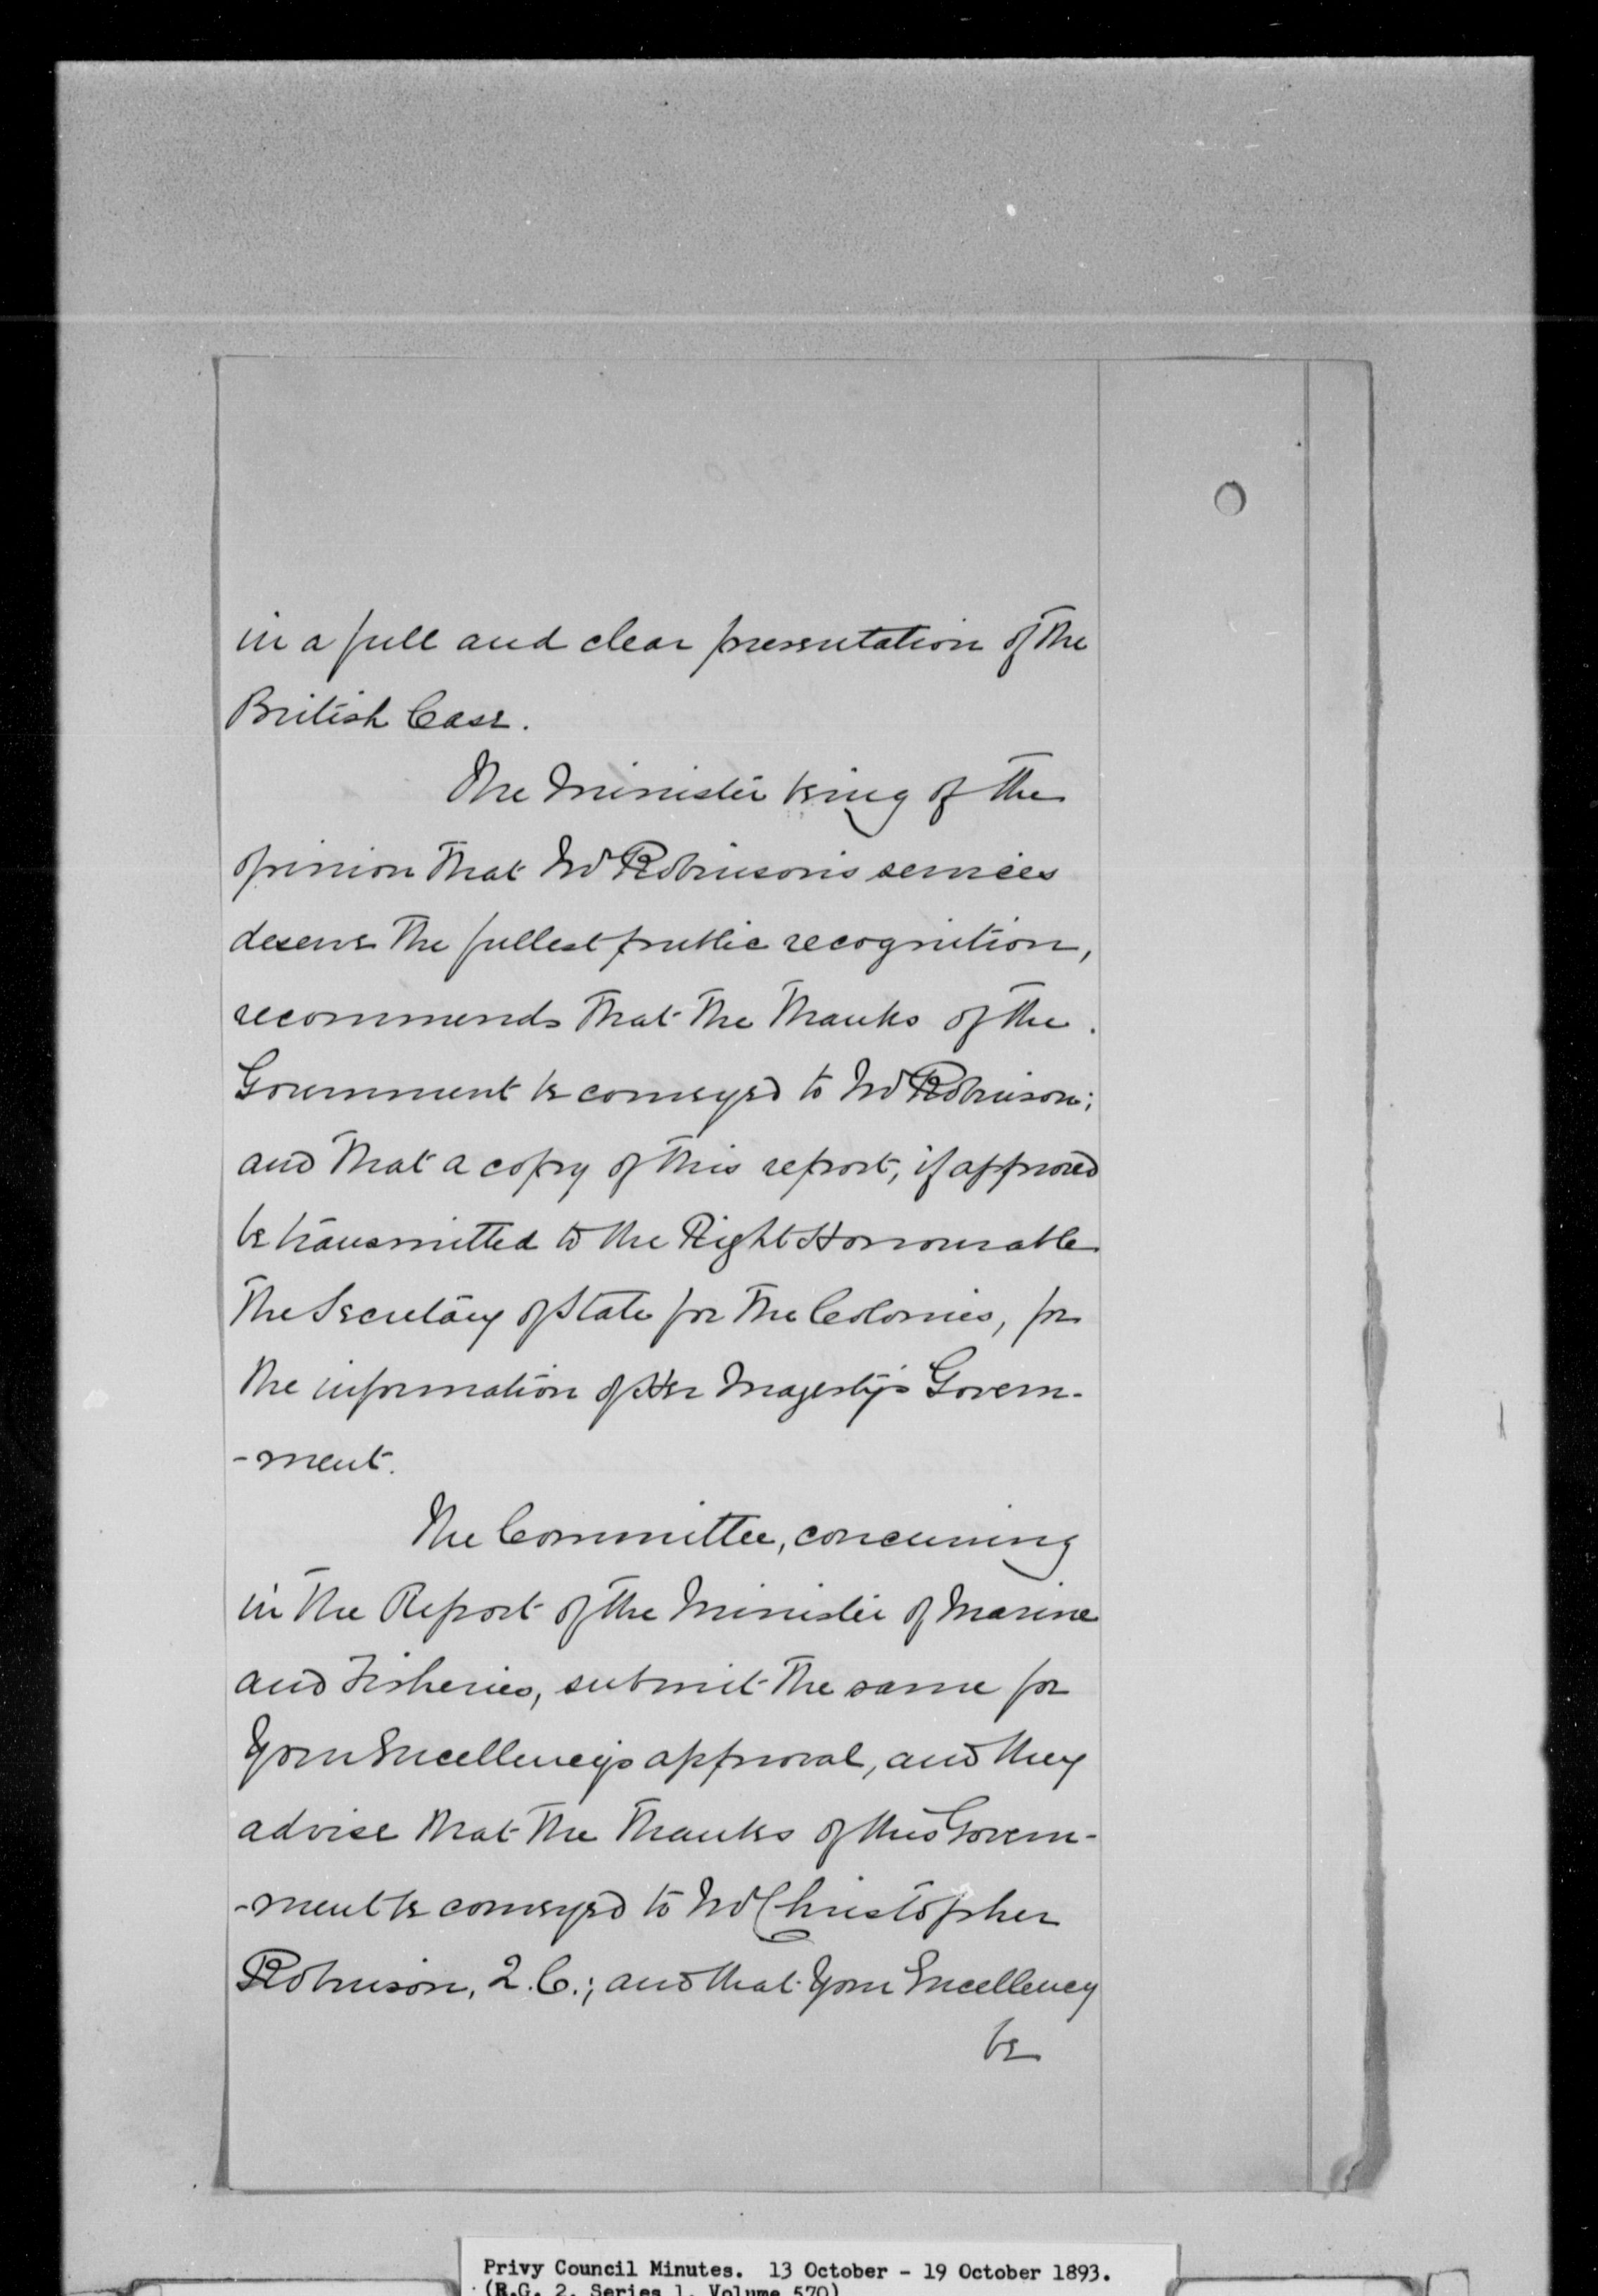 in a full and clear presentation of the
British Case.
The Minister being of the
opinion that Mr Robinson's services
deserve the fullest public recognition,
recommends that the thanks of the
Government be conveyed to Mr Robinson;
and that a copy of this report, if approved
be transmitted to the Right Honourable
the Secretary of State for the Colonies, for
the information of Her Majesty's Govern-
-ment.
The Committee, concurring
in the Report of the Minister of Marine
and Fisheries, submit the same for
Your Excellency's approval, and they
advise that the thanks of this Govern-
-ment be conveyed to Mr Christopher
Robinson, Q.C.; and that Your Excellency
be
Privy Council Minutes. 13 October - 19 October 1893.
(R.G. 2, Series 1, Volume 570)